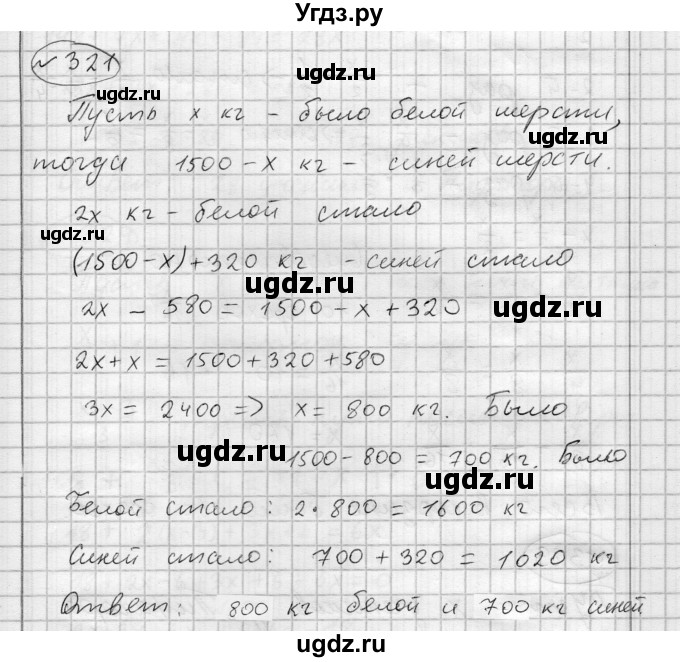 Угдз.ру
№ 321
ugdz.ru
Пусть x кг - было белой шерсти,
ugdz.ru
тогда 1500 - x кг - синей шерсти.
2x кг - белой стало
ugdz.ru
(1500 - x) + 320 кг - синей стало
ugdz.ru
2x - 580 = 1500 - x + 320
2x + x = 1500 + 320 + 580
3x = 2400 => x = 800 кг. Было
ugdz.ru
1500 - 800 = 700 кг. Было
ugdz.ru
Белой стало: 2 · 800 = 1600 кг
Синей стало: 700 + 320 = 1020 кг
Ответ: 800 кг белой и 700 кг синей
ugdz.ru